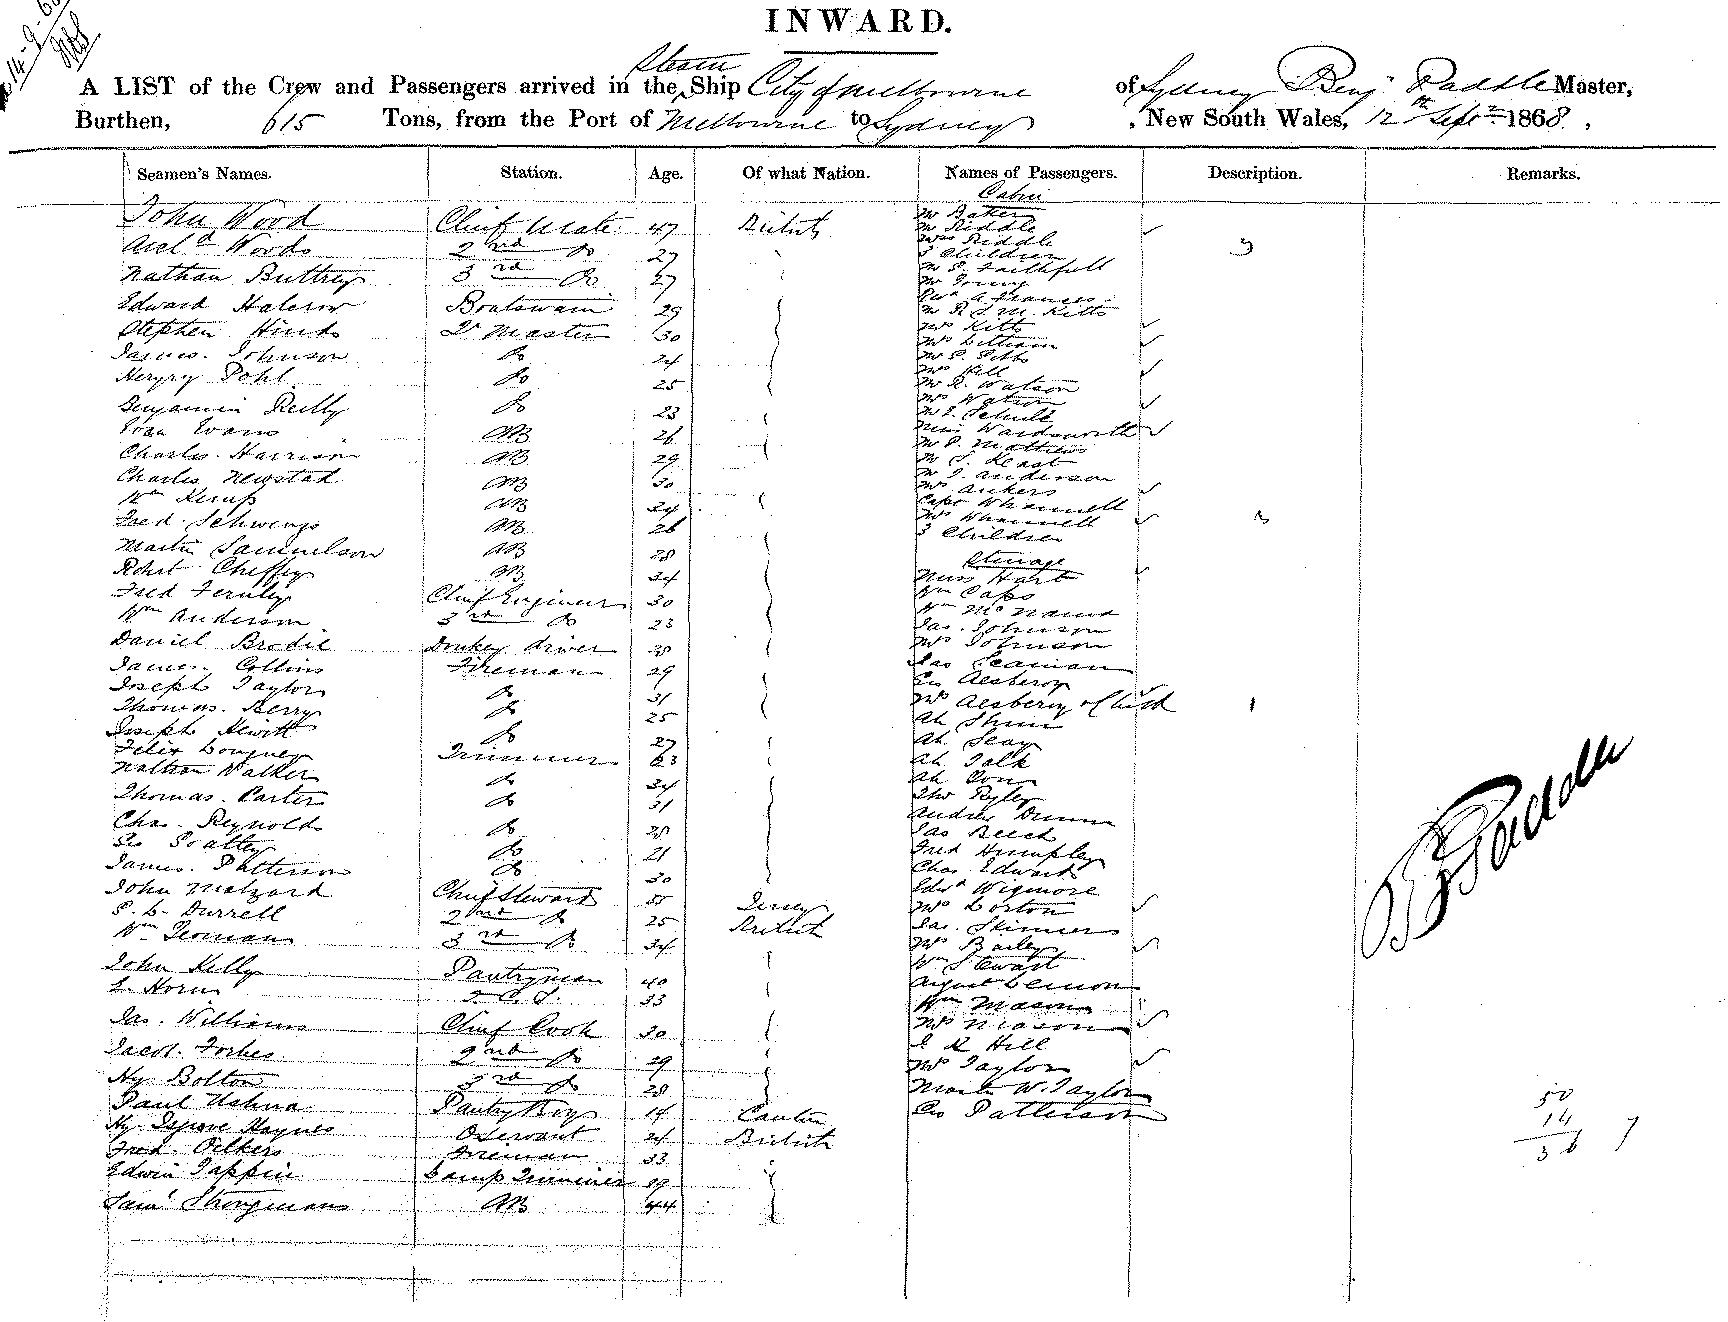 14-9-68
INWARD.
A LIST of the Crew and Passengers arrived in the Steam Ship City of Melbourne of Sydney Benj Paddle Master,
Burthen, 615 Tons, from the Port of Melbourne to Sydney, New South Wales, 12th Sept 1868.
Seamen's Names. Station. Age. Of what Nation. Names of Passengers. Description. Remarks.
Cabin
John Wood Chief Mate 47 British Mr Baker
Mr Riddle
Arch'd Woods 2nd Do 27 Mrs Riddle
3 Children 3
Nathan Buttrey 3rd Do 27 Mr Faithfull
Mr Young
Edward Halcrow Boatswain 29 Francis
Mr R S M. Kitts
Stephen Hinds Qr Master 30 Mrs Kitts
James Johnson Do 24
Henry Pohl Do 25 Mrs Hill
Mr R. Watson
Benjamin Reilly Do 23 Mrs Watson
Evan Evans AB 26 Miss Wardsworth
Charles Harrison AB 29 Mr P. Mathews
Mr S. Keast
Charles Newstad AB 30 Mr J. Anderson
Wm Kemp AB 24 Mrs Ankers
Capt Whannell
Fred Schwings AB 26 Mrs Whannell
3 Children 3
Martin Samuelson AB 28
Steerage
Robt Cheffey AB 34 Miss Hart
Fred Fernley Chief Engineer 30 Wm Caps
Wm Anderson 3rd Do 23 Wm McNama
Jas. Johnson
Daniel Brodie Donkey driver 38 Mrs Johnson
James Collins Fireman 29 Jas Seaman
Joseph Taylor Do 31 Geo Aesberoy
Thomas Berry Do 25 Mrs Aesberoy & Child 1
Joseph Hewitt Do 27 Ah Shin
Felix Trimmer 23 Ah Seay
Nathan Walker Do 34 Ah Talk
Thomas Carter Do 31 Tho Ryley
Andrew Dunn
Chas. Reynolds Do 28 Jas Beech
Geo Do 21 Fred Humpley
James Patterson Do 30 Chas Edwards
John Malzard Chief Steward 51 Jersey Edwd Wigmore
S. L. Durrell 2nd Do 25 British Mrs Lorton
Jas. Skinner
Wm Yeoman 3rd Do 34 Mrs Bailey
Wm Stewart
John Kelly Pantryman 40 August Lemon
E. Horn F. C. S. 33 Wm Mason
Jas. Williams Chief Cook 30 Mrs Mason
Jacob Forbes 2nd Do 29 J R Hill
Mrs Taylor
Hy Bolton 3rd Do 28 Mastr W. Taylor
Paul Ushna Pantry Boy 14 Canton Geo Patterson
Hy Haynes O Servant 24 British
Fred. Pilkers Fireman 33
Edwin Tappin Lamp Trimmer 19
Saml Strongmans AB 44
50
14
36 7
B Paddle